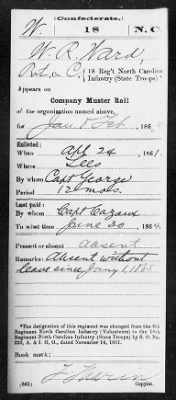 (Confederate.)
W. 18 N.C
W. R. Ward,
Pvt, Co. C, 18 Reg't North Carolina
Infantry (State Troops).*
Appears on
Company Muster Roll
of the organization named above,
for Jan & Feb, 186
Enlisted:
When Apl 24, 1861.
Where
By whom Capt George
Period 12 mos.
Last paid:
By whom Capt Cazaux
To what time June 30, 1864.
Present or absent Absent
Remarks: Absent without
leave since Jany 1, 1865
*The designation of this regiment was changed from the 8th
Regiment North Carolina Infantry (Volunteers) to the 18th
Regiment North Carolina Infantry (State Troops) by S. O. No.
222, A. & I. G. O., dated November 14, 1861.
Book mark:
(642)
Copyist.